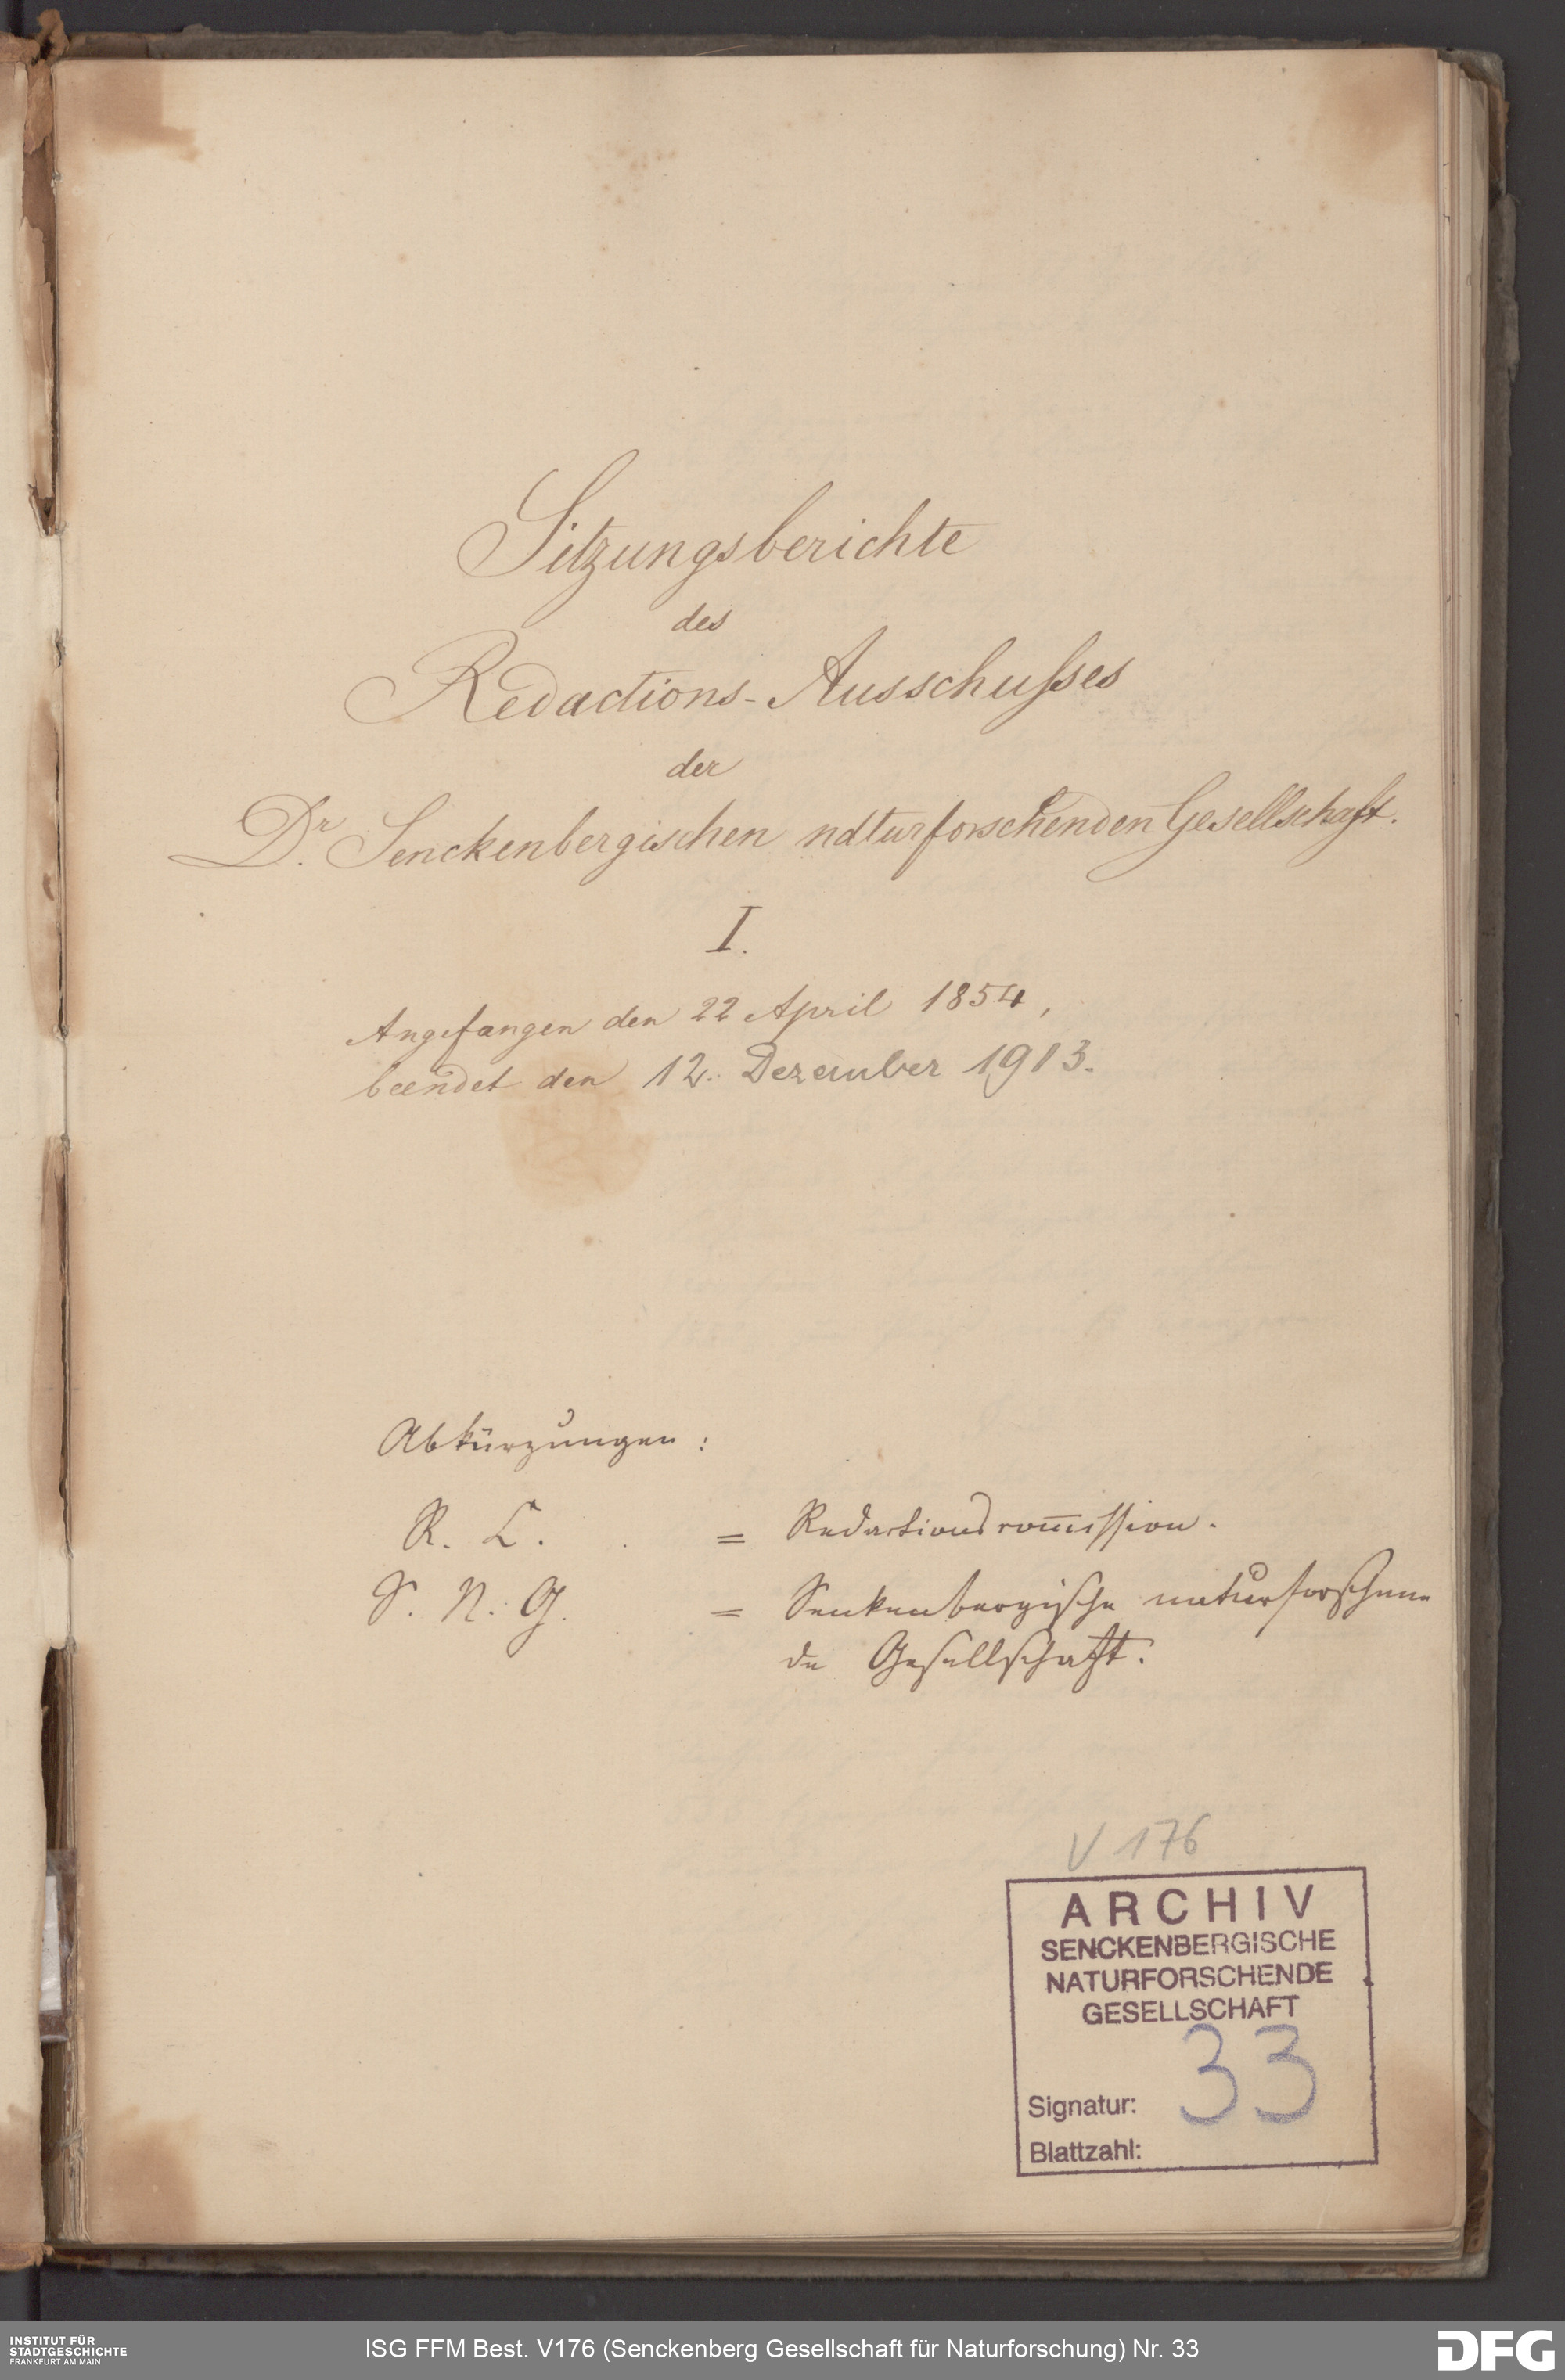 Sitzungsberichte
des
Redactions-Ausschußes
der
Dr. Senckenbergischen naturforschenden Gesellschaft.
I.
Angefangen den 22 April 1854,
beendet den 12. Dezember 1913.
Abkürzungen:
R. C. = Redactionscom̅ission.
S. N. G. = Senkenbergische naturforschen
de Gesellschaft.
V 176
ARCHIV
SENCKENBERGISCHE
NATURFORSCHENDE
GESELLSCHAFT
33
Signatur:
Blattzahl:
INSTITUT FÜR
STADTGESCHICHTE
FRANKFURT AM MAIN
ISG FFM Best. V176 (Senckenberg Gesellschaft für Naturforschung) Nr. 33
DFG